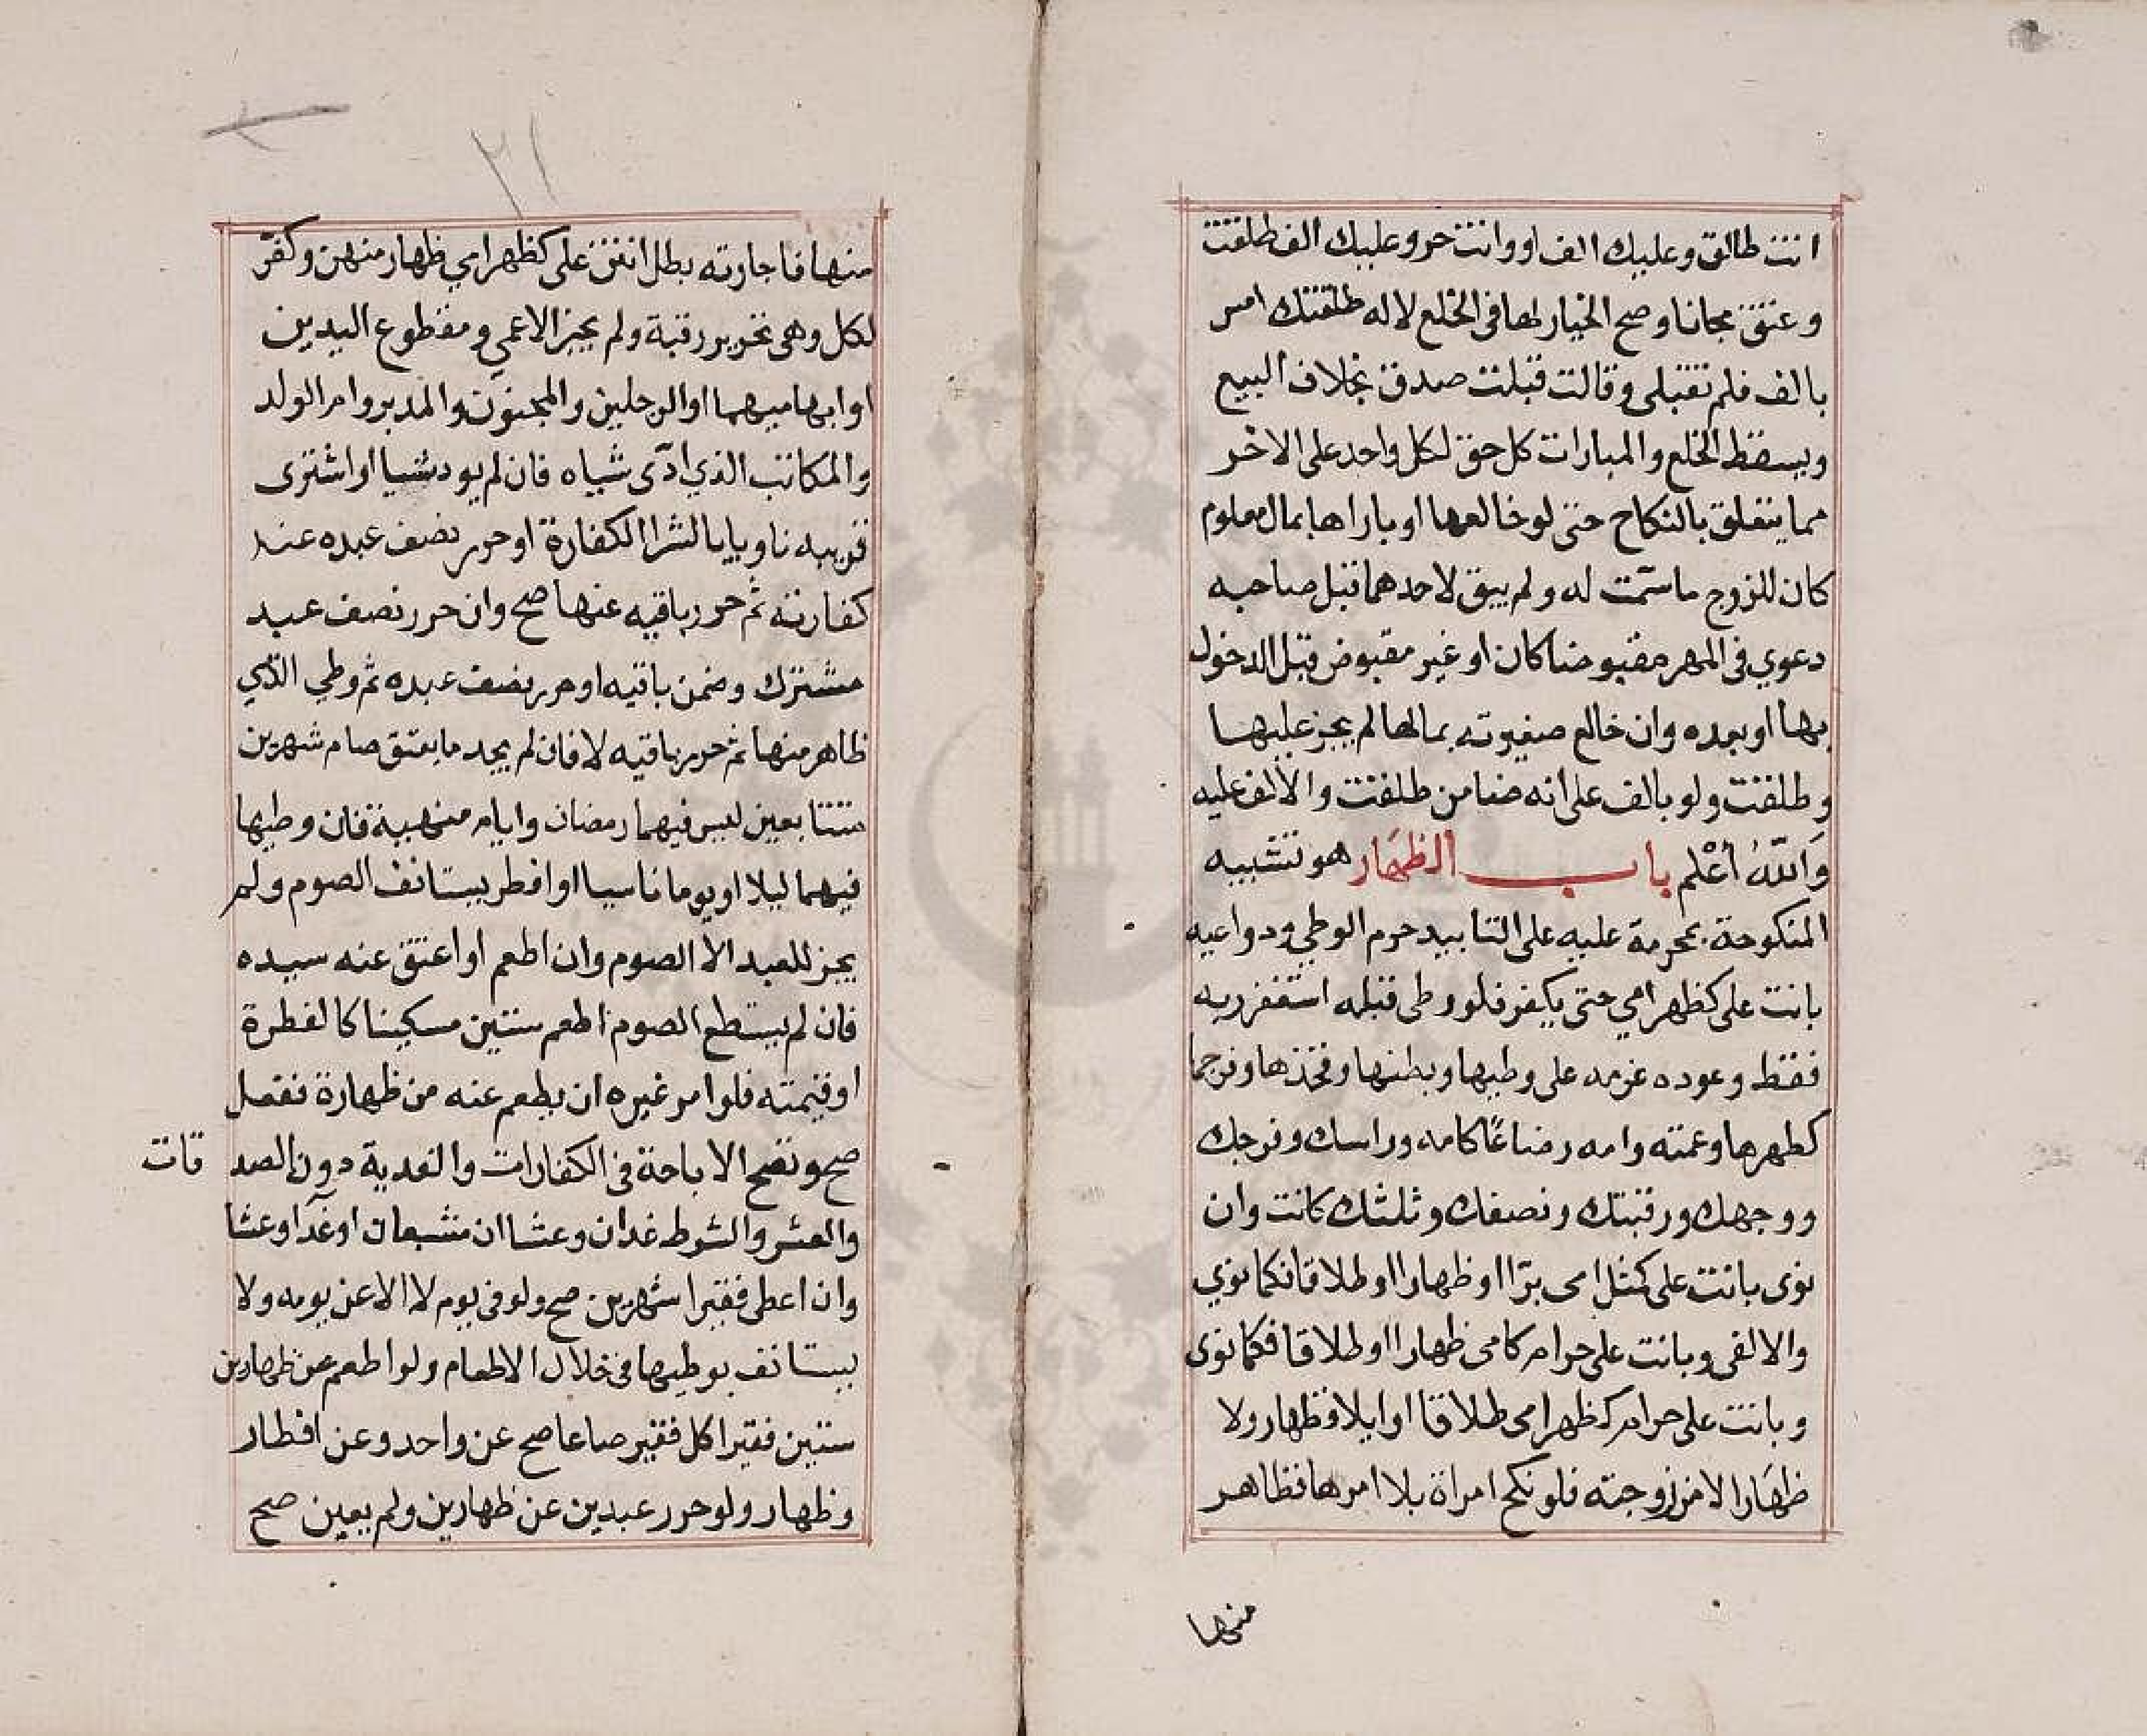 انت طالق وعليك الف او وانت حر وعليك الف طلقت
وعتق مجانا وصح الخيار لها في الخلع لا له طلقتك امس
بالف فلم تقبلي وقالت قبلت صدق بخلاف البيع
ويسقط الخلع والمبارات كل حق لكل واحد على الاخر
مما يتعلق بالنكاح حتى لو خالعها او باراها بمال معلوم
كان للزوج ما سمّت له ولم يبق لاحدهما قبل صاحبه
دعوي في المهر مقبوضا كان او غير مقبوض قبل الدخول
بها او بعده وان خالع صغيرته بمالها لم يجز عليها
وطلقت ولو بالف على انه ضامن طلقت والالف عليه
وَاللّهُ أعْلم باب الظهَار هو تشبيه
المنكوحة بمحرمة عليه على التابيد حرم الوطي ودواعيه
بانت على كظهر امي حتى يكفر فلو وطى قبله استغفر ربه
فقط وعوده عزمه على وطيها وبطنها وفخذها وفرجها
كظهرها وعمته وامه رضاعًا كامه وراسك وفرجك
ووجهك ورقبتك ونصفك وثلثك كانت وان
نوى بانت على كمثل امى برّا او ظهارا او طلاقا فكما نوي
والا لغى وبانت على حرام كامى ظهارا او طلاقا فكما نوى
وبانت على حرام كظهر امى طلاقا او ايلا فظهار ولا
ظهَارا الا من زوجته فلو نكح امراة بلا امرها فظاهر
منها
٢١
منها فاجازته بطل انتن على كظهر امي ظهار منهن وكفّر
لكل وهى تحرير رقبة ولم يجز الاعمي ومقطوع اليدين
او ابهاميهما او الرجلين والمجنون والمدبر وام الولد
والمكاتب الذي ادّى شياه فان لم يود شيا او اشترى
قريبه ناويا بالشرا الكفارة او حرر نصف عبده عند
كفارته ثم حرر باقيه عنها صح وان حرر نصف عبد
مشترك وضمن باقيه او حرر نصف عبده ثم وطي الذي
ظاهر منها ثم حرر باقيه لا فان لم يجد ما يعتق صام شهرين
متتابعين ليس فيهما رمضان وايام منهية فان وطيها
فيهما ليلا او يوما ناسيا او افطر يستانف الصوم ولم
يجز للعبد الا الصوم وان اطعم او اعتق عنه سيده
فان لم يستطع الصوم اطعم ستين مسكينا كالفطرة
او قيمته فلو امر غيره ان يطعم عنه من ظهارة ففعل
صح وتصح الاباحة في الكفارات والفدية دون الصد قات
والعشر والشرط غدان وعشاان مشبعان او غدا وعشا
وان اعطى فقيرا شهرين صح ولو فى يوم لا الا عن يومه ولا
يستانف بوطيها في خلال الاطعام ولو اطعم عن ظهارين
ستين فقيرا كل فقير صاعا صح عن واحد وعن افطار
وظهار ولو حرر عبدين عن ظهارين ولم يعين صح